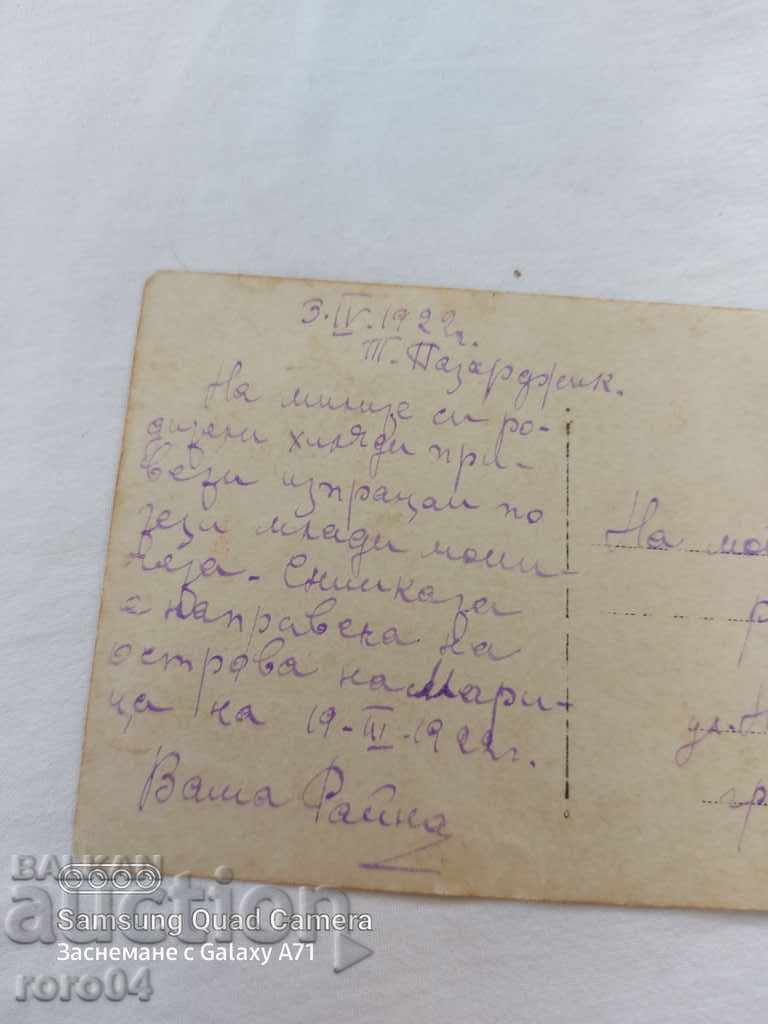 3.IV.1922г.
Т. Пазарджик.
На милите си ро-
дители хиляди при-
вети изпращам по
тези млади момче-
та. Снимката
е направена на
острова на Мари-
ца на 19-III-1922г.
Ваша Райна
На мо
р
ул. Н
гр
БАЛКАН
auction
roro04
Samsung Quad Camera
Заснемане с Galaxy A71